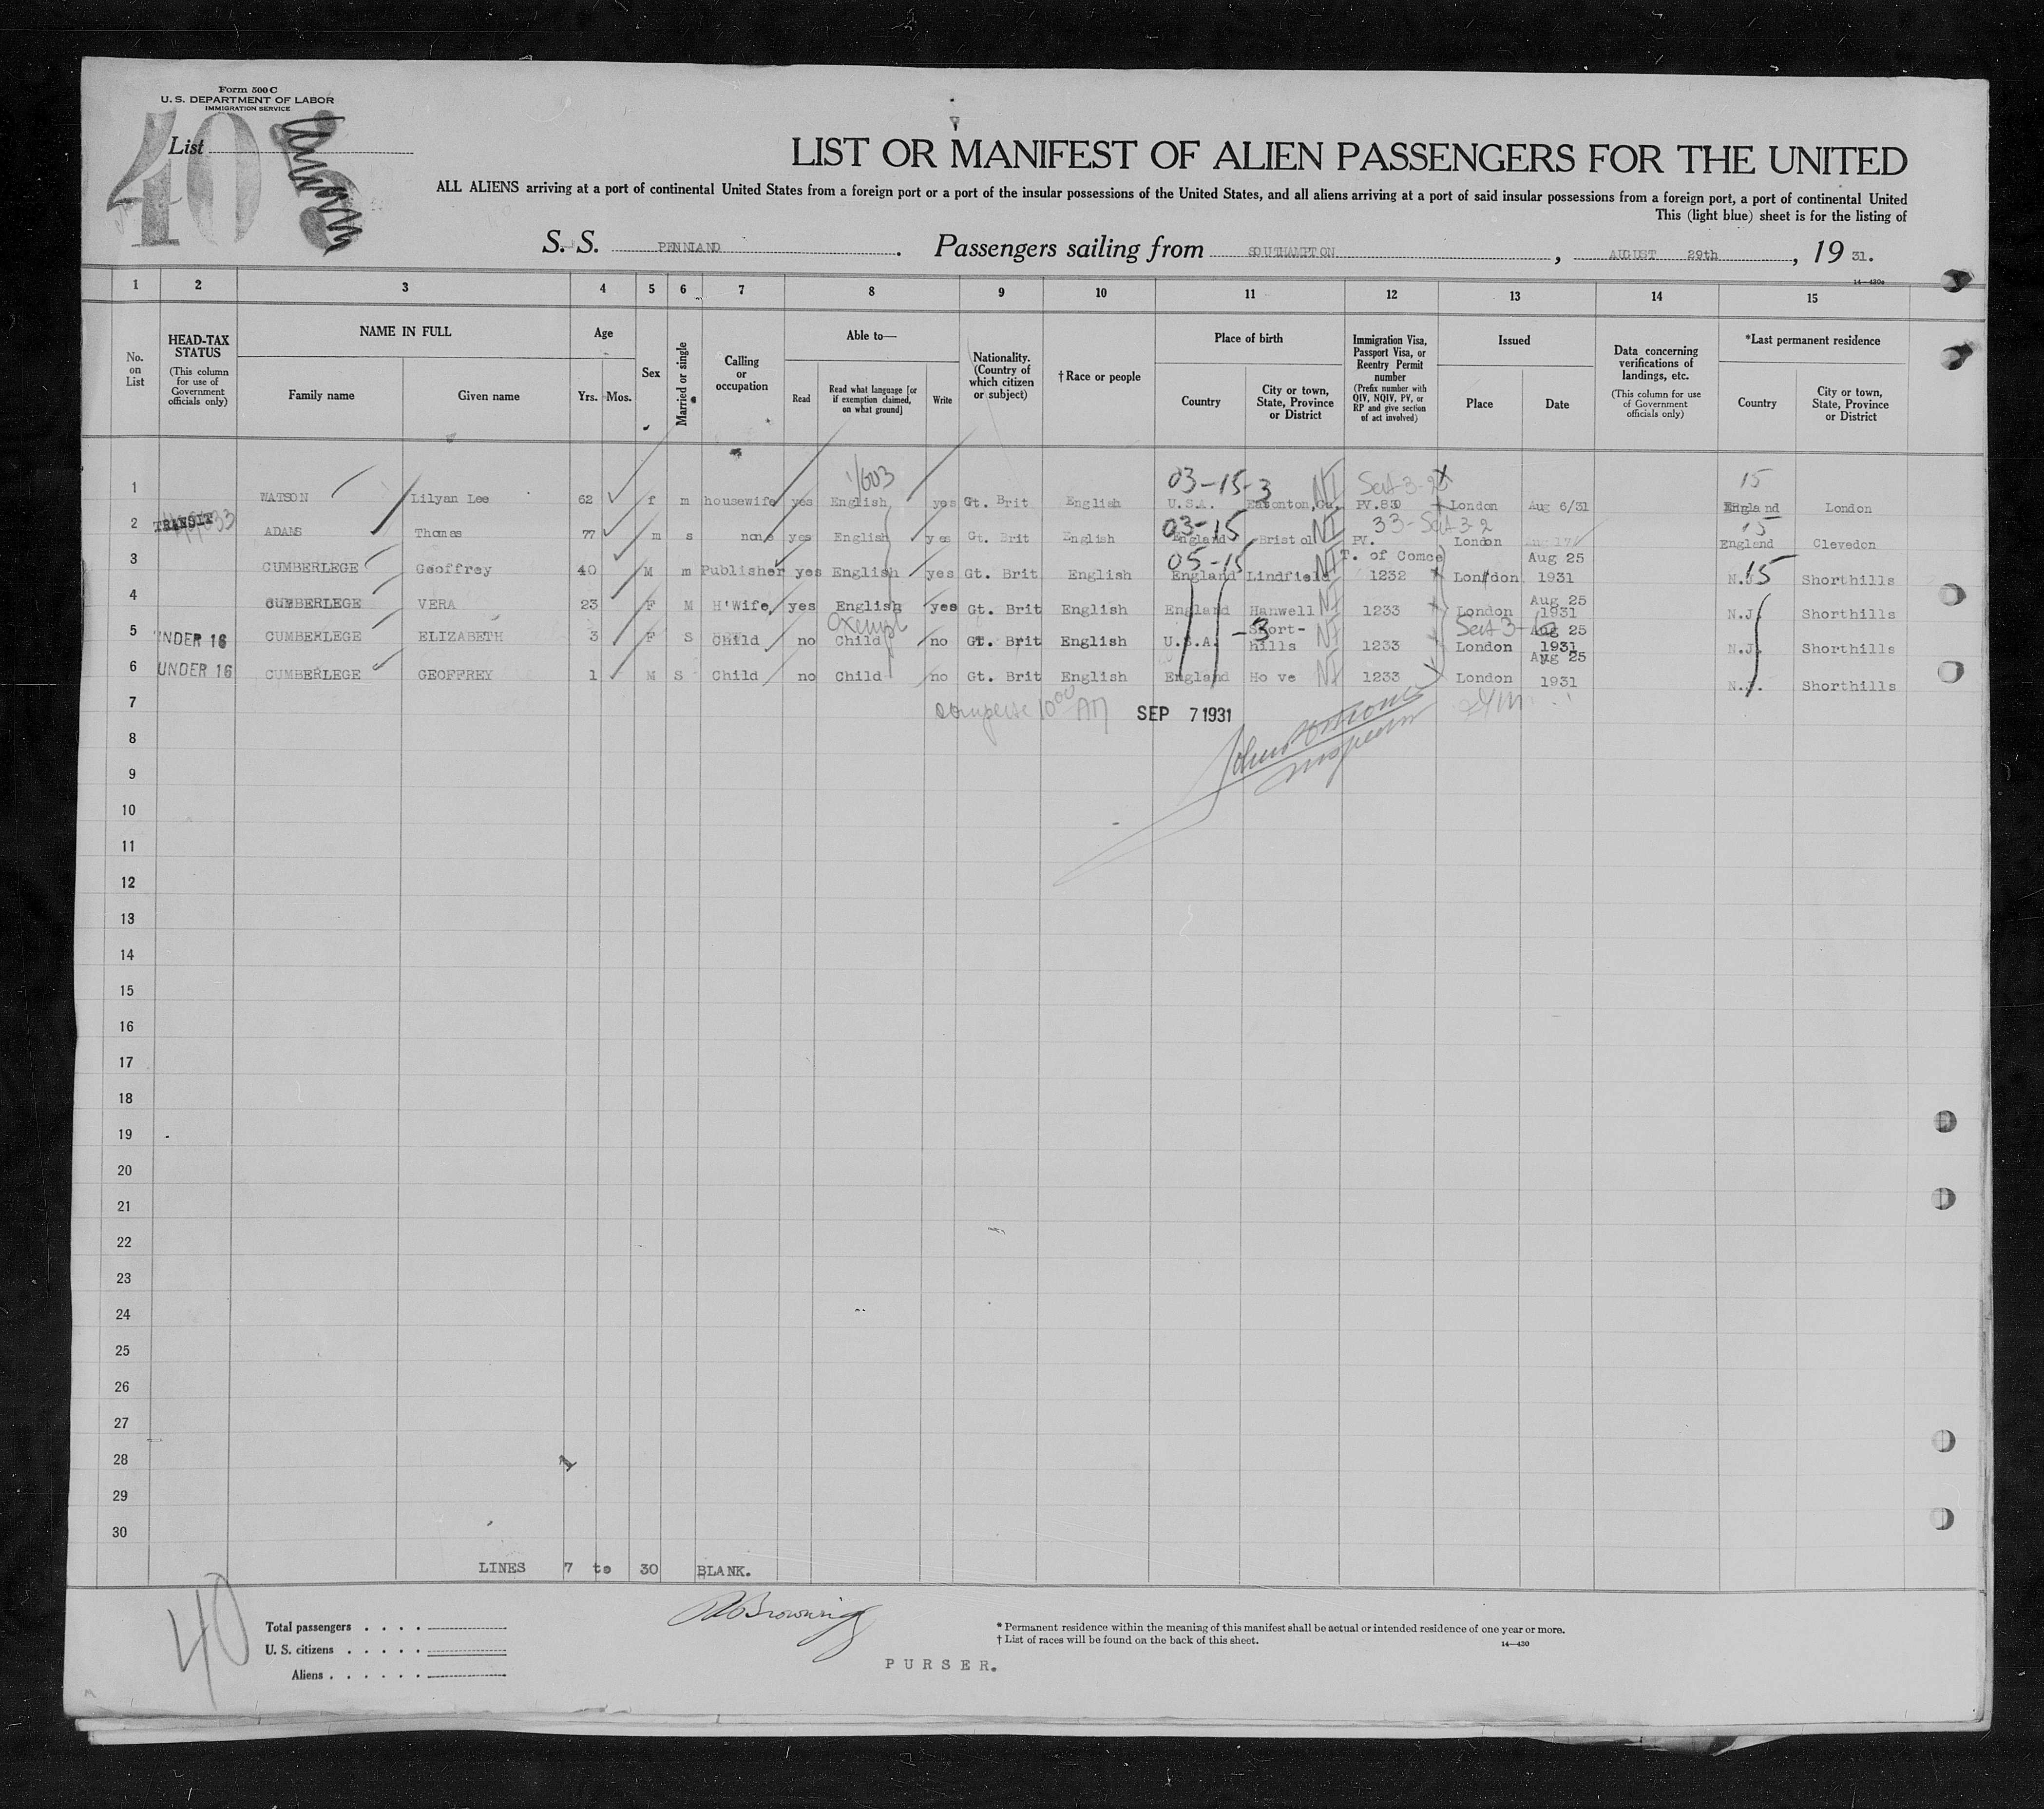 Form 500 C
U. S. DEPARTMENT OF LABOR
IMMIGRATION SERVICE
40
List
LIST OR MANIFEST OF ALIEN PASSENGERS FOR THE UNITED
ALL ALIENS arriving at a port of continental United States from a foreign port or a port of the insular possessions of the United States, and all aliens arriving at a port of said insular possessions from a foreign port, a port of continental United
This (light blue) sheet is for the listing of
S. S. PENNLAND. Passengers sailing from SOUTHAMPTON, AUGUST 29th, 19 31.
14—430a
1 2 3 4 5 6 7 8 9 10 11 12 13 14 15
No. on List
HEAD-TAX STATUS
(This column for use of Government officials only)
NAME IN FULL
Family name Given name
Age
Yrs. Mos.
Sex
Married or single
Calling or occupation
Able to—
Read
Read what language [or if exemption claimed, on what ground]
Write
Nationality. (Country of which citizen or subject)
†Race or people
Place of birth
Country
City or town, State, Province or District
Immigration Visa, Passport Visa, or Reentry Permit number
(Prefix number with QIV, NQIV, PV, or RP and give section of act involved)
Issued
Place Date
Data concerning verifications of landings, etc.
(This column for use of Government officials only)
*Last permanent residence
Country
City or town, State, Province or District
1/603 03-15-3 NI Sect 3-2 15
1 WATSON Lilyan Lee 62 f m housewife yes English yes Gt. Brit English U.S.A. Eatonton, PV. London Aug 6/31 England London
TRANSIT 03-15 NI 33-Sect 3-2 15
2 ADAMS Thomas 77 m s none yes English yes Gt. Brit English England Bristol PV. London England Clevedon
05-15 NI T. of Comce Aug 25 15
3 CUMBERLEGE Geoffrey 40 M m Publisher yes English yes Gt. Brit English England Lindfield 1232 London 1931 N.J. Shorthills
4 CUMBERLEGE VERA 23 F M H'Wife yes English yes Gt. Brit English England Hanwell NI 1233 London Aug 25 1931 N.J. Shorthills
Exempt Sect 3-
5 UNDER 16 CUMBERLEGE ELIZABETH 3 F S Child no Child no Gt. Brit English U.S.A. -3 Short-hills NI 1233 London Aug 25 1931 N.J. Shorthills
6 UNDER 16 CUMBERLEGE GEOFFREY 1 M S Child no Child no Gt. Brit English England Hove NI 1233 London Aug 25 1931 N.J. Shorthills
7 10 00 AM SEP 7 1931
Inspector
8
9
10
11
12
13
14
15
16
17
18
19
20
21
22
23
24
25
26
27
28
29
30
LINES 7 to 30 BLANK.
40
Total passengers
U. S. citizens
Aliens
Browning
PURSER.
* Permanent residence within the meaning of this manifest shall be actual or intended residence of one year or more.
† List of races will be found on the back of this sheet.
14—430